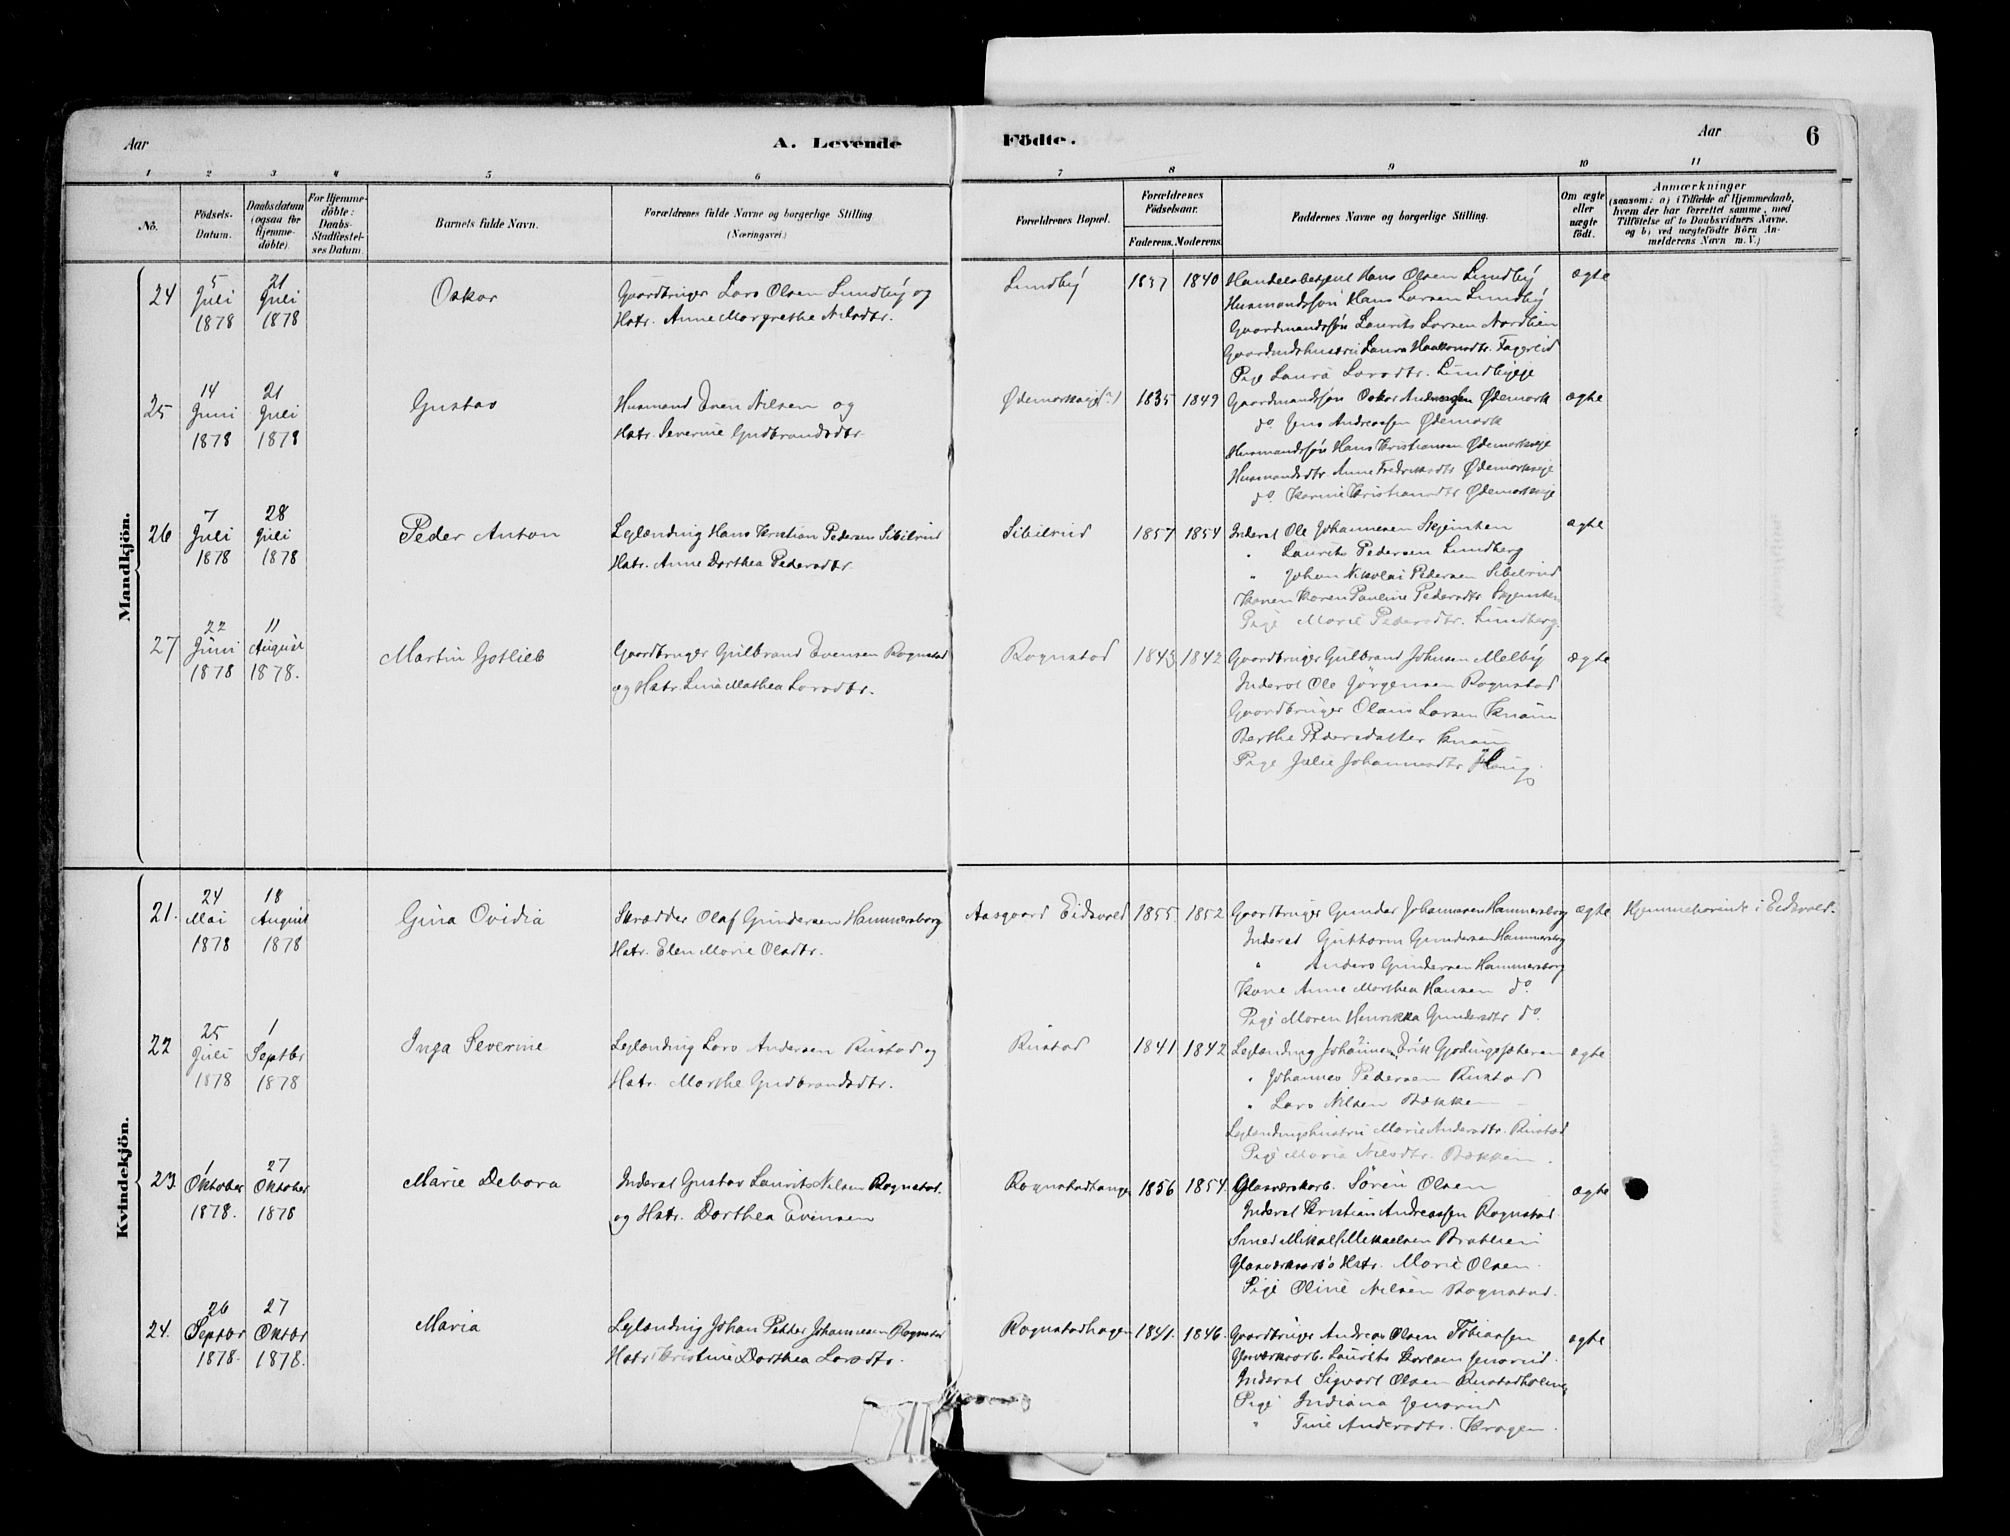 Aar
A. Levende
Födte.
Aar
6
1 2 3 4 5 6 7 8 9 10 11
No.
Födsels-
Datum.
Daabsdatum
(ogsaa for
hjemme-
döbte).
For Hjemme-
döbte:
Daabs-
Stadfæstel-
ses Datum.
Barnets fulde Navn.
Forældrenes fulde Navne og borgerlige Stilling
(Næringsvei)
Forældrenes Bopæl.
Forældrenes
Födselsaar.
Faderens. Moderens.
Faddernes Navne og borgerlige Stilling.
Om ægte
eller
uægte
födt.
Anmærkninger
(saasom: a) i Tilfælde af Hjemmedaab,
hvem der har forrettet samme, med
Tilföielse af to Daabsvidners Navne.
og b) ved uægtefödte Börn An-
melderens Navn m. V.)
Mandkjön.
24
5
Juli
1878
21
Juli
1878
Oskar
Gaardbruger Lars Olsen Lundby og
Hstr. Anne Margrethe Nilsdtr.
Lundby
1837
1840
Handelsbetjent Hans Olsen Lundby
Husmandssøn Hans Larsen Lundby
Gaardmandssøn Laurits Larsen Nordlien
Laura Haakonsdtr.
Pige Laura Larsdtr. Lundbyeje
ægte
25
14
Juni
1878
21
Juli
1878
Gustav
Husmand Even Nilsen og
Hstr. Severine Gudbrandsdtr.
Ødemarkseje
1835
1849
Gaardmandssøn Oskar Ødemark
do. Jens Andreassen Ødemark
Husmandssøn Hans Kristiansen Ødemarkseje
Husmandsdtr Anne Fredriksdtr Ødemarkseje
do. Karine Kristiansdtr Ødemarkseje
ægte
26
7
Juli
1878
28
Juli
1878
Peder Anton
Leilænding Hans Kristian Pedersen Sibilrud
Hstr. Anne Dorthea Pedersdtr.
Sibilrud
1857
1854
Inderst Ole Johannesen
" Laurits Pedersen Lundberg
" Johan Nikolai Pedersen Sibilrud
Konen Karen Pauline Pedersdtr
Pige Marie Pedersdtr. Lundberg
ægte
27
22
Juni
1878
11
August
1878.
Martin Gotlieb
Gaardbruger Gulbrand Evensen Rognstad
og Hstr. Lina Mathea Larsdtr.
Rognstad
1843
1842
Gaardbruger Gulbrand Johnsen Melby
Inderst Ole Jørgensen Rognstad
Gaardbruger Olaus Larsen Knain
Berthe Pedersdatter Knain
Pige Julie Johannesdtr Haug.
ægte
Kvindekjön.
21.
24
Mai
1878
18
August
1878
Gina Ovidia
Skrædder Olaf Gundersen Hammersborg
Hstr. Elen Marie Olsdtr.
Aasgaard Eidsvold
1855
1852
Gaardbruger Gunder Johannesen Hammersborg
Inderst Guttorm Gundersen Hammersborg
" Anders Gundersen Hammersborg
Kone Anne Marthea Hansen do.
Pige Maren Henrikka Gundersdtr do.
ægte
Hjemmehørende i Eidsvold.
22
25
Juli
1878
1
Septbr
1878
Inga Severine
Leilænding Lars Andersen Rustad og
Hstr. Marthe Gudbrandsdtr.
Rustad
1841
1842
Leilænding
" Johannes Pedersen Rustad
" Lars Nilsen Bækken
Leilændingshustru Marie Andersdtr. Rustad
Pige Maria Nilsdtr. Bækken.
ægte
23.
1
Oktober
1878.
27
Oktober
1878
Marie Debora
Inderst Gustav Laurits Nilsen Rognstad.
og Hstr. Dorthea Evensen
Rognstadtangen
1856
1854.
Glasværksarb. Sören Olsen
Inderst Kristian Andreassen Rognstad
Smed Mikal Mikaelsen Bratlien
Glasværksarb's Hstr. Marie Olsen.
Pige Oline Nilsen Rognstad.
ægte
24.
26
Septbr
1878.
27
Oktbr
1878.
Maria
Leilænding Johan Petter Johannesen Rognstad
Hstr. Kristine Dorthea Larsdtr.
Rognstadhagen
1841.
1846.
Gaardbruger Andreas Olsen Tobiassen
Laurits Karlsen Jensrud.
Inderst Sigvart Olsen
Pige Indiana Jensrud
" Tine Andersdtr. Kragen.
ægte